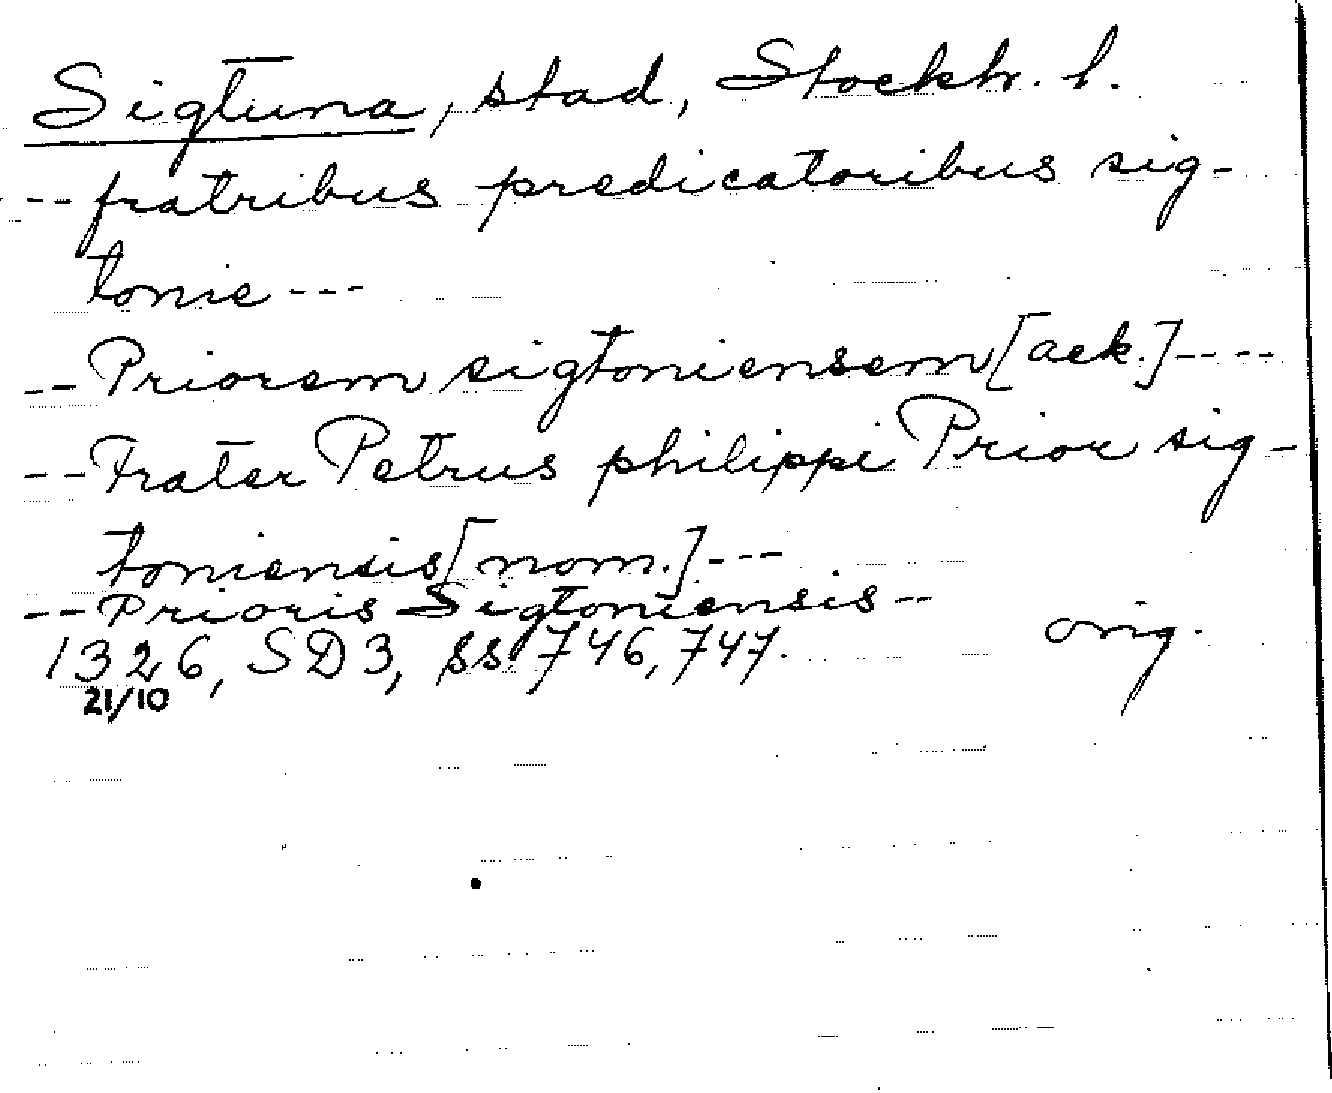 Sigtuna, stad, Stockh. l.
-- fratribus predicatoribus sig-
tonie ---
-- Priorem sigtoniensem [ack.] ----
-- Frater Petrus philippi Prior sig-
toniensis [nom.] ---
-- Prioris Sigtoniensis --
1326, SD3, ss. 746, 747. orig.
21/10